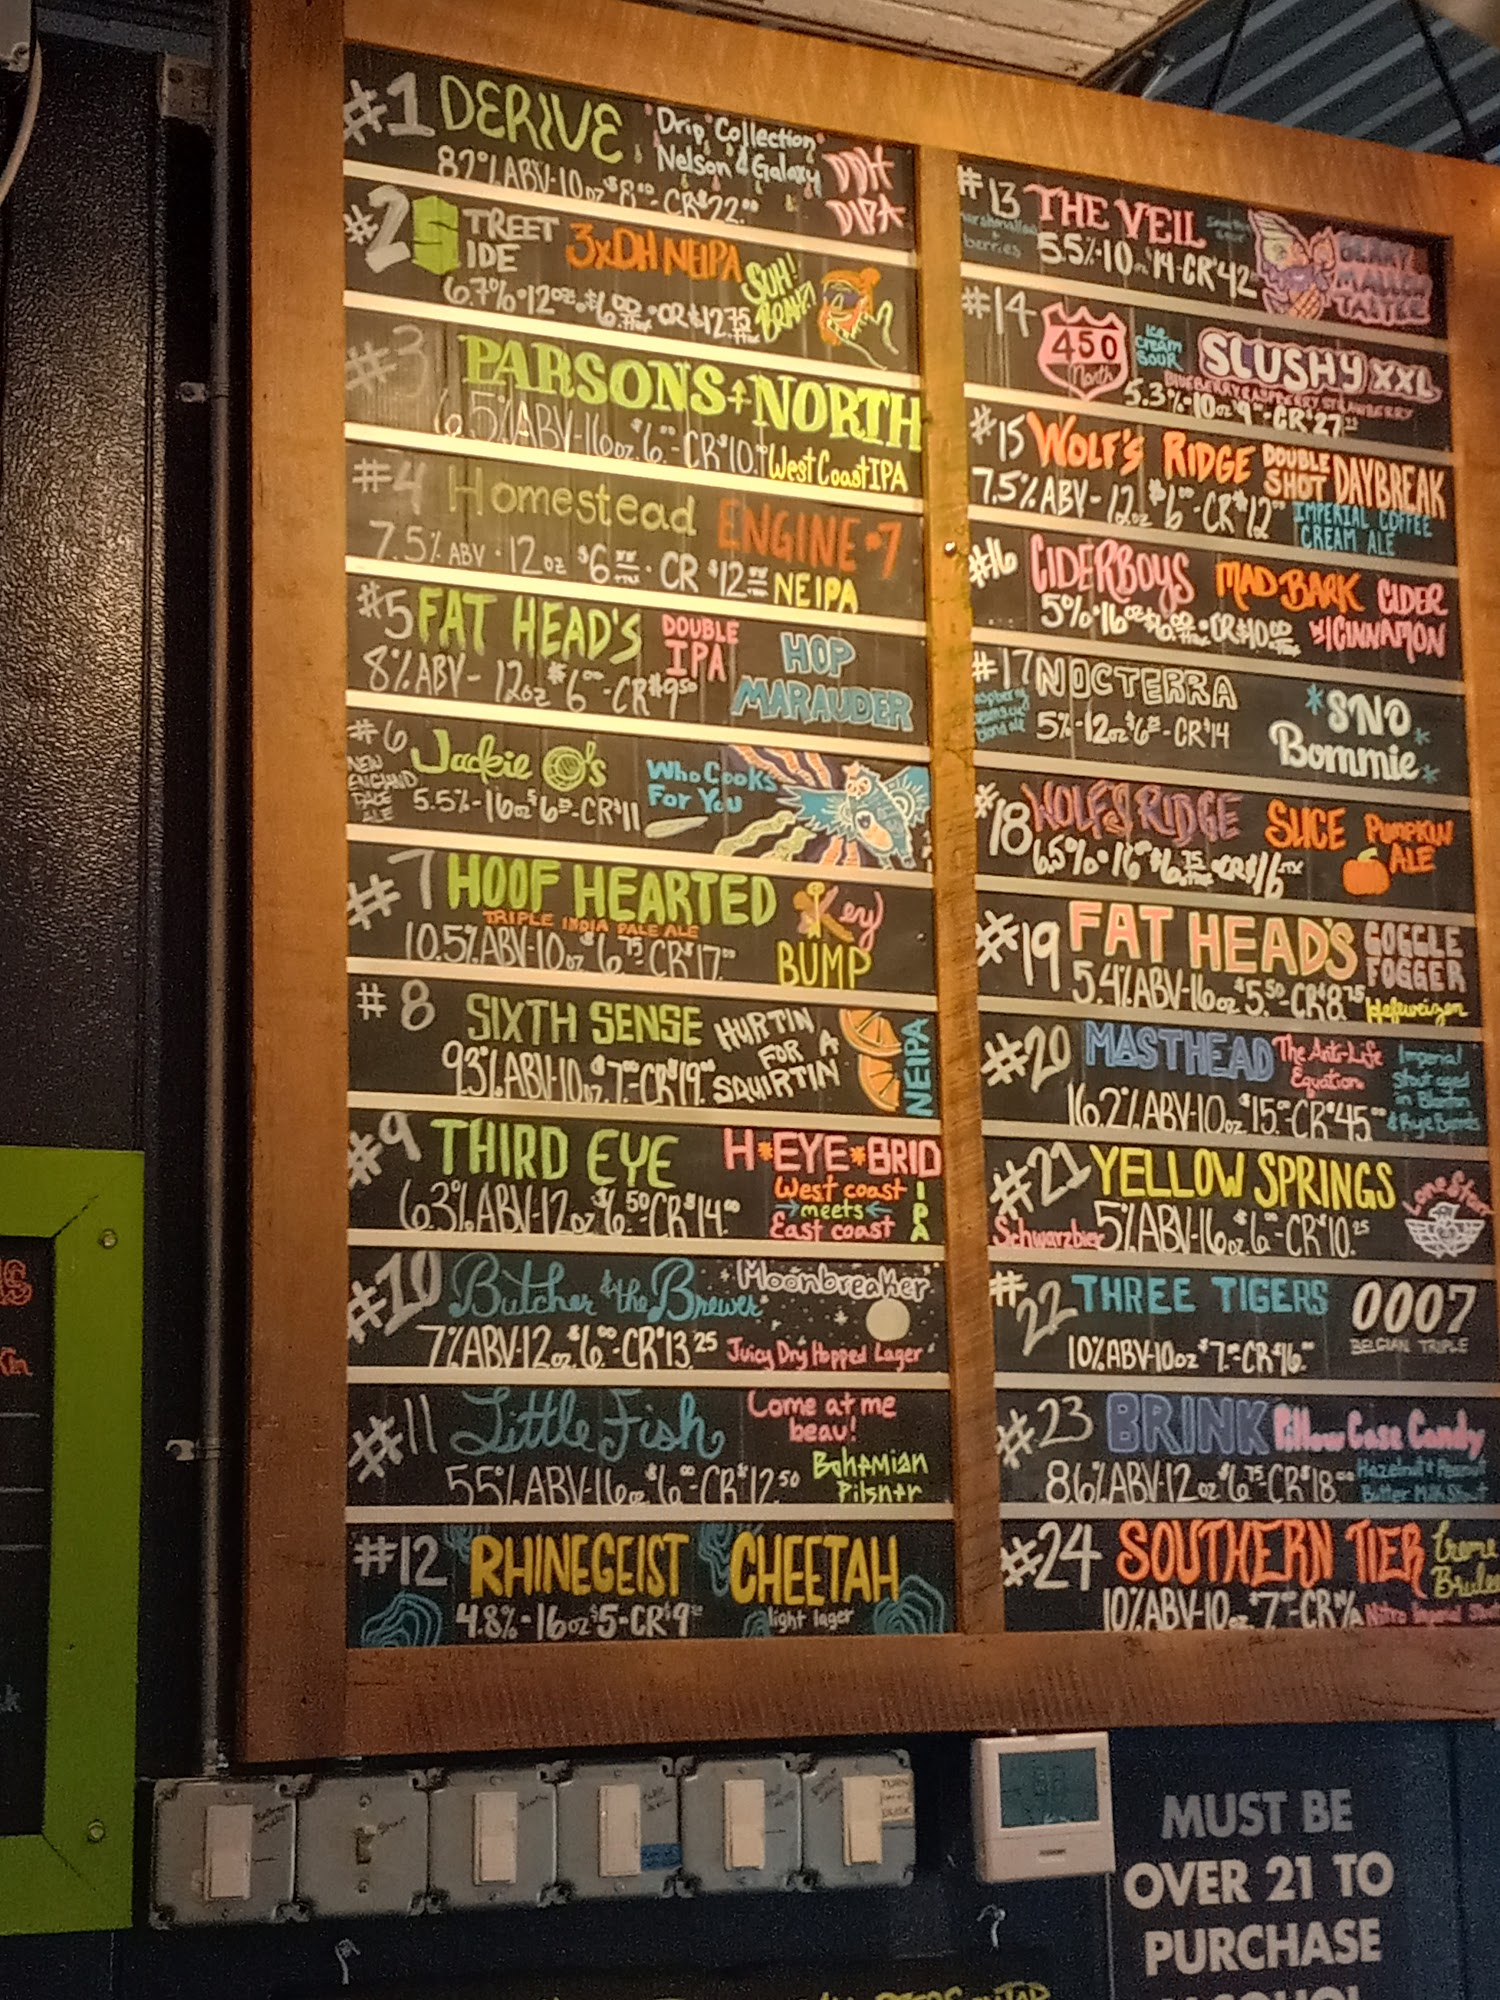 #1 DERIVE "Drip Collection" DDH
Nelson & Galaxy DIPA
8.2% ABV-10oz $8.00-CR $22.00
#2 STREET SIDE 3xDH NEIPA SUH! BRAH
6.7%•12oz•$6.00+TAX•CR $12.75+TAX
#3 PARSONS NORTH
6.5% ABV-16oz $6.-CR $10. West Coast IPA
#4 Homestead ENGINE #7
7.5% ABV•12oz $6•CR $12 NEIPA
#5 FAT HEAD'S DOUBLE IPA HOP MARAUDER
8% ABV-12oz $6.00-CR $9.50
#6 Jackie O's Who Cooks
NEW ENGLAND PALE ALE For You
5.5%-16oz $6-CR $11
#7 HOOF HEARTED Key
TRIPLE INDIA PALE ALE BUMP
10.5% ABV-10oz $6.75-CR $17.00
#8 SIXTH SENSE HURTIN FOR A SQUIRTIN NEIPA
9.3% ABV-10oz $7.-CR $19.00
#9 THIRD EYE H*EYE*BRID
West coast meets East coast IPA
6.3% ABV-12oz $6.50-CR $14.00
#10 Butcher & the Brewer Moonbreaker
7% ABV-12oz $6.00-CR $13.25 Juicy Dry Hopped Lager
#11 Little Fish Come at me beau!
5.5% ABV-16oz $6.00-CR $12.50 Bohemian Pilsner
#12 RHINEGEIST CHEETAH
4.8%-16oz $5-CR $9 light lager
#13 THE VEIL BERRY MALLOW TASTEE
berries 5.5%-10oz $14-CR $42
#14 450 North Ice Cream Sour SLUSHY XXL
BLUEBERRY RASPBERRY STRAWBERRY
5.3%-10oz $9-CR $27
#15 WOLF'S RIDGE DOUBLE SHOT DAYBREAK
7.5% ABV-12oz $6-CR $12 IMPERIAL COFFEE CREAM ALE
#16 CIDERBOYS MAD BARK CIDER
5%•16oz $6.00+TAX•CR $10.00 W/CINNAMON
#17 NOCTERRA *SNO Bommie*
5%-12oz $6-CR $14
#18 WOLF'S RIDGE SLICE PUMPKIN ALE
6.5%•16oz $6.75•CR $16
#19 FAT HEAD'S GOGGLE FOGGER
5.4% ABV-16oz $5.50-CR $8.75 Hefeweizen
#20 MASTHEAD The Anti-Life Equation Imperial Stout aged in Bourbon & Rye Barrels
16.2% ABV-10oz $15.-CR $45.00
#21 YELLOW SPRINGS Lone Starr
Schwarzbier 5% ABV-16oz $6.-CR $10.25
#22 THREE TIGERS 0007
10% ABV-10oz $7.-CR $16. BELGIAN TRIPLE
#23 BRINK Pillow Case Candy
8.6% ABV-12oz $6.75-CR $18.00 Hazelnut & Peanut Butter Milk Stout
#24 SOUTHERN TIER Creme Brulee
10% ABV-10oz $7-CR N/A Nitro Imperial Stout
TURN
DUSK
MUST BE
OVER 21 TO
PURCHASE
ALCOHOL